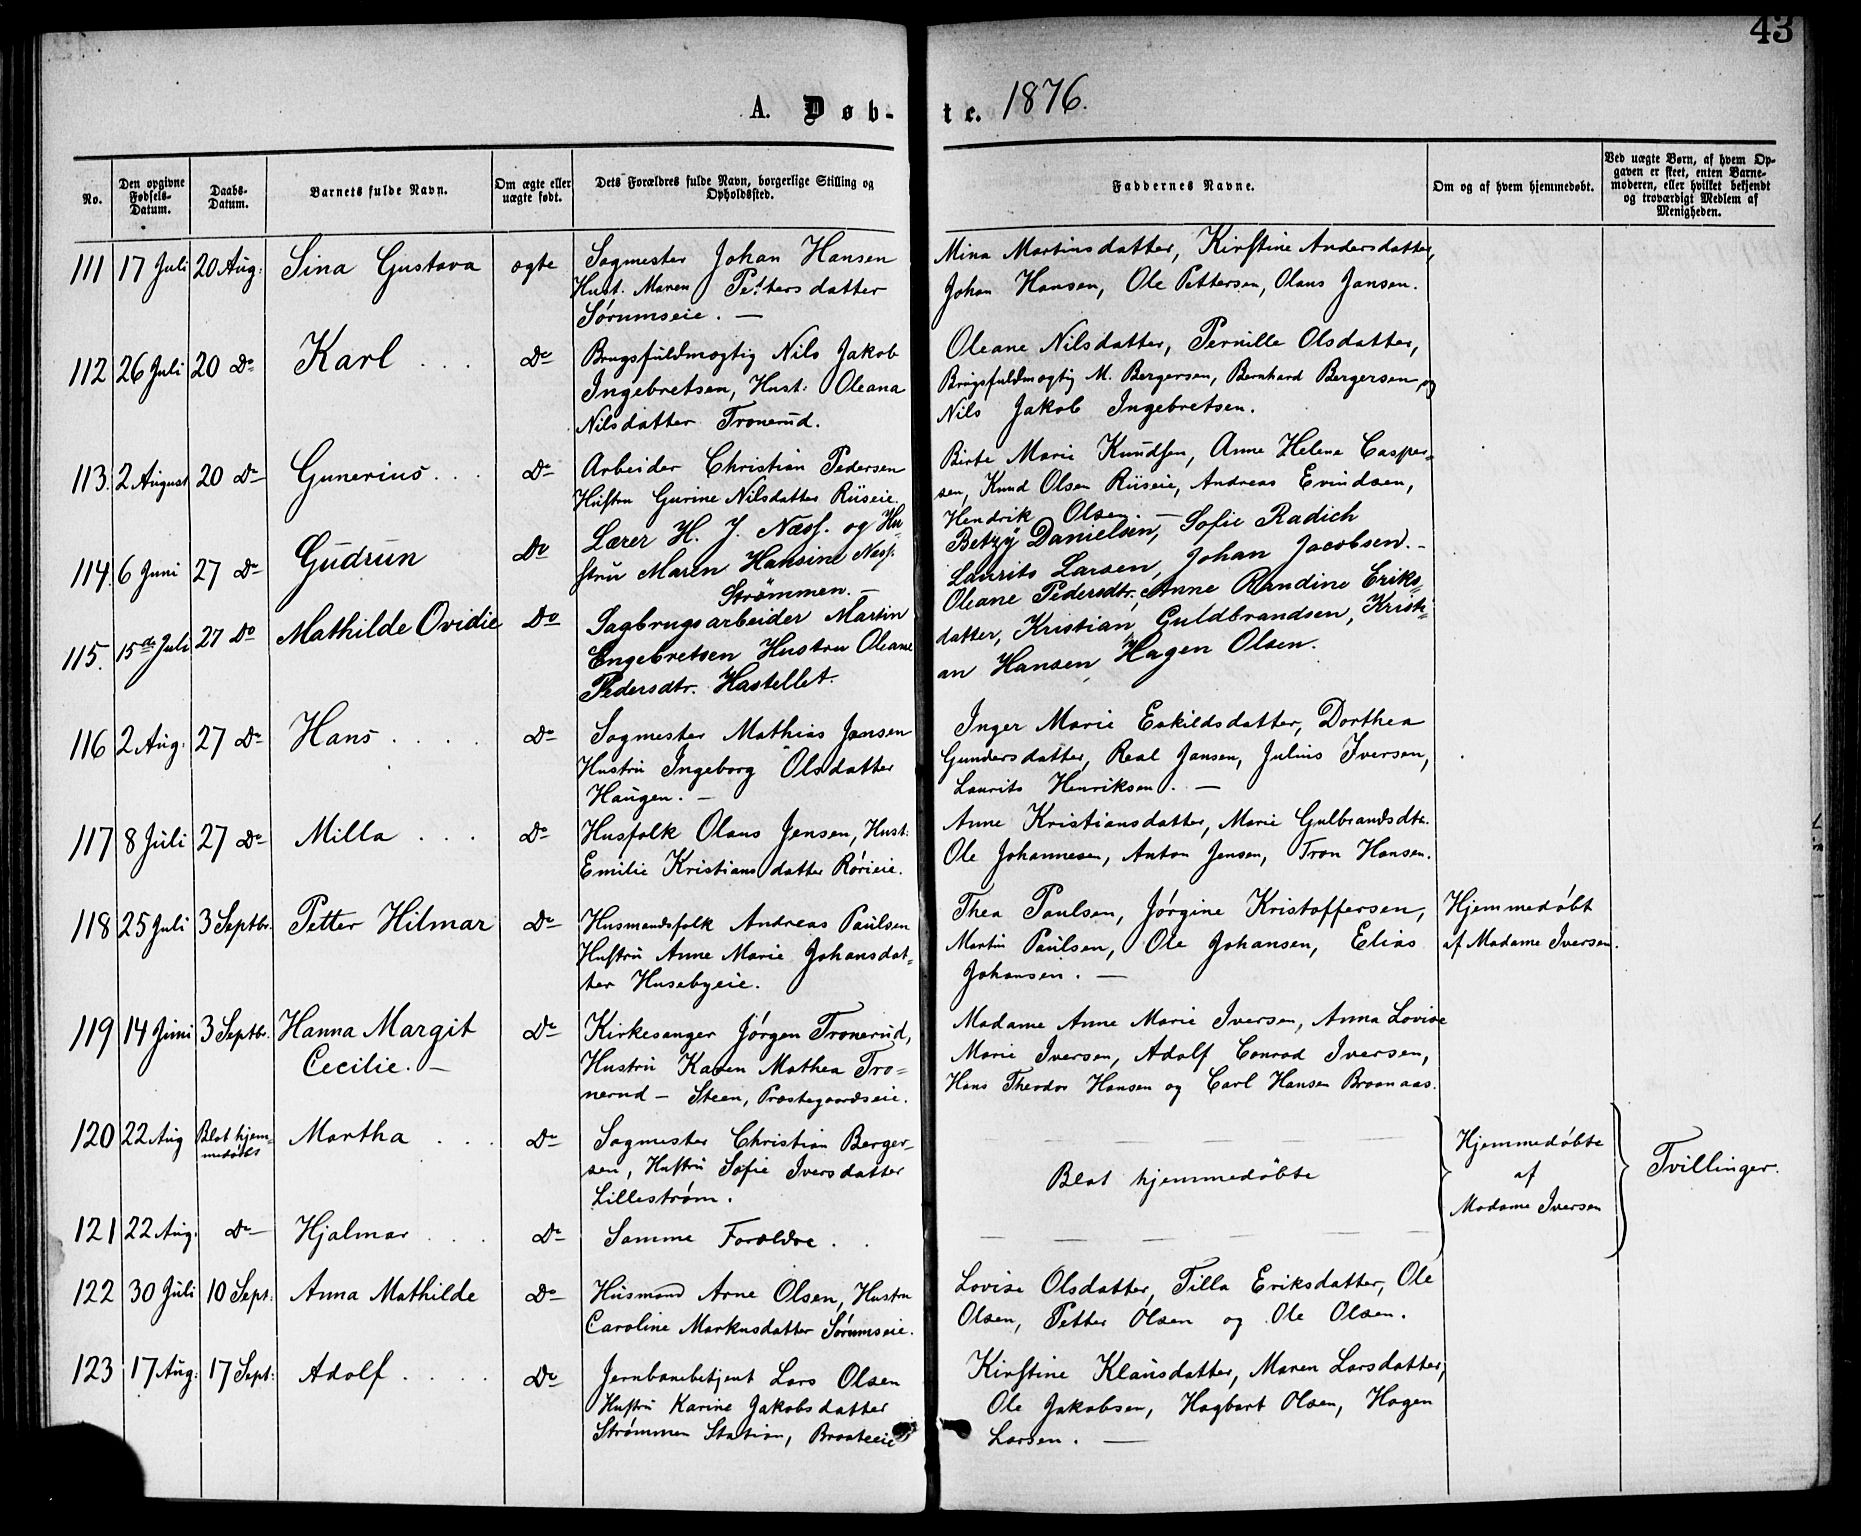 43
A. Døb-
te. 1876.
No.
Den opgivne
Fødsels-
Datum.
Daabs-
Datum.
Barnets fulde Navn.
Om ægte eller
uægte født.
Dets Forældres fulde Navn, borgerlige Stilling og
Opholdssted.
Faddernes Navne.
Om og af hvem hjemmedøbt.
Ved uægte Børn, af hvem Op-
gaven er skeet, enten Barne-
moderen, eller hvilket bekjendt
og troværdigt Medlem af
Menigheden.
111 17 Juli 20 Aug: Sina Gustava ægte
Sagmester Johan Hansen
Hust. Maren Pettersdatter
Sørumseie. —
Mina Martinsdatter, Kirstine Andersdatter,
Johan Hansen, Ole Pettersen, Olaus Jansen.
112 26 Juli 20 Do Karl . . . Do
Brugsfuldmægtig Nils Jakob
Ingebretsen, Hust: Oleana
Nilsdatter Tronerud.
Oleane Nilsdatter, Pernille Olsdatter,
Brugsfuldmægtig M. Bergersen, Bernhard Bergersen, og
Nils Jakob Ingebretsen.
113. 2 August 20 Do Gunerius . . . Do
Arbeider Christian Pedersen
Hustru Gurine Nilsdatter Riiseie.
Birte Marie Knudsen, Anne Helene Casper=
sen, Knud Olsen Riiseie, Andreas Evindsen,
Hendrik Olsen. —
114. 6 Juni 27 Do Gudrun Do
Lærer H. J. Næss. og Hu-
stru Maren Hansine Næss.
Strömmen. —
Betzÿ Danielsen, Sofie Radich
Laurits Larsen, Johan Jacobsen. -
115. 15de Juli 27 Do Mathilde Ovidie Do
Sagbrugsarbeider Martin
Engebretsen Hustru Oleane
Pedersdtr. Hastellet.
Oleane Pedersdtr, Anne Randine Eriks=
datter, Kristian Guldbrandsen, Kristi=
an Hansen, Hagen Olsen.
116 2 Aug: 27 Do Hans . . . . Do
Sagmester Mathias Jansen
Hustru Ingeborg Olsdatter
Haugen. —
Inger Marie Eskildsdatter, Dorthea
Gundersdatter, Real Jansen, Julius Iversen,
Laurits Henriksen. —
117 8 Juli 27 Do Milla . . . Do
Husfolk Olaus Jensen, Hust:
Emilie Kristiansdatter Rørieie.
Anne Kristiansdatter, Marie Gulbrandsdtr.
Ole Johannesen, Anton Jensen, Tron Hansen.
118 25 Juli 3 Septbr. Petter Hilmar Do
Husmandsfolk Andreas Paulsen
Hustru Anne Marie Johansdat=
ter Husebyeie.
Thea Paulsen, Jørgine Kristoffersen,
Martin Paulsen, Ole Johansen, Elias
Johansen. —
Hjemmedøbt
af Madame Iversen.
119 14 Juni 3 Septbr. Hanna Margit
Cecilie. — Do
Kirkesanger Jørgen Tronerud,
Hustru Karen Mathea Tro=
nerud — Steen, Præstegaardseie.
Madame Anne Marie Iversen, Anna Lovise
Marie Iversen, Adolf Conrad Iversen,
Hans Theodor Hansen og Carl Hansen Braanaas.
120 22 Aug Blot hjem=
medøbt Martha . . . Do
Sagmester Christian Berger-
sen, Hustru Sofie Iversdatter
Lillestrøm.
Blot hjemmedøbte
Hjemmedøbte
af
Madame Iversen
Tvillinger.
121 22 Aug. Do Hjalmar . . . Do
Samme Forældre . .
122 30 Juli 10 Sept: Anna Mathilde Do
Husmand Arne Olsen, Hustru
Caroline Markusdatter Sørumseie.
Lovise Olsdatter, Tilla Eriksdatter, Ole
Olsen, Petter Olsen og Ole Olsen.
123 17 Aug: 17 Sept: Adolf . . . . Do
Jernbanebetjent Lars Olsen
Hustru Karine Jakobsdatter
Strømmen Station, Braateeie
Kirstine Klausdatter, Maren Larsdatter,
Ole Jakobsen, Hagbart Olsen, Hagen
Larsen. —